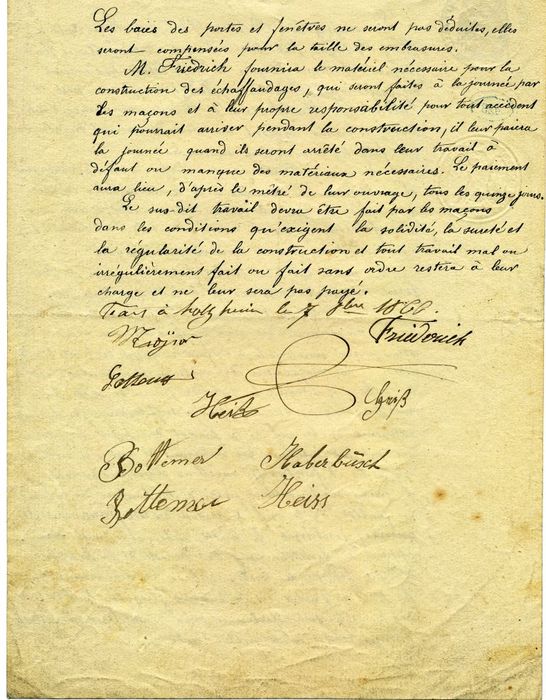 Les baies des portes et fenêtres ne seront pas déduites, elles
seront compensées pour la taille des embrasures.
M. Friedrich fournira le matériel nécessaire pour la
construction des échaffaudages, qui seront faites à la journée par
les maçons et à leur propre responsabilité pour tout accident
qui pourrait arriver pendant la construction, il leur paiera
la journée quand ils seront arrêté dans leur travail à
défaut ou manque des matériaux nécessaires. Le paiement
aura lieu, d'après le métré de leur ouvrage, tous les quinze jours.
Le sus-dit travail devra être fait par les maçons
dans les conditions qu'exigent la solidité, la sureté et
la régularité de la construction et tout travail mal ou
irrégulièrement fait ou fait sans ordre restera à leur
charge et ne leur sera pas payé.
à holzheim le 7 bre 1866.
Friedrich
Bottemer Haberbüsch
Heiss